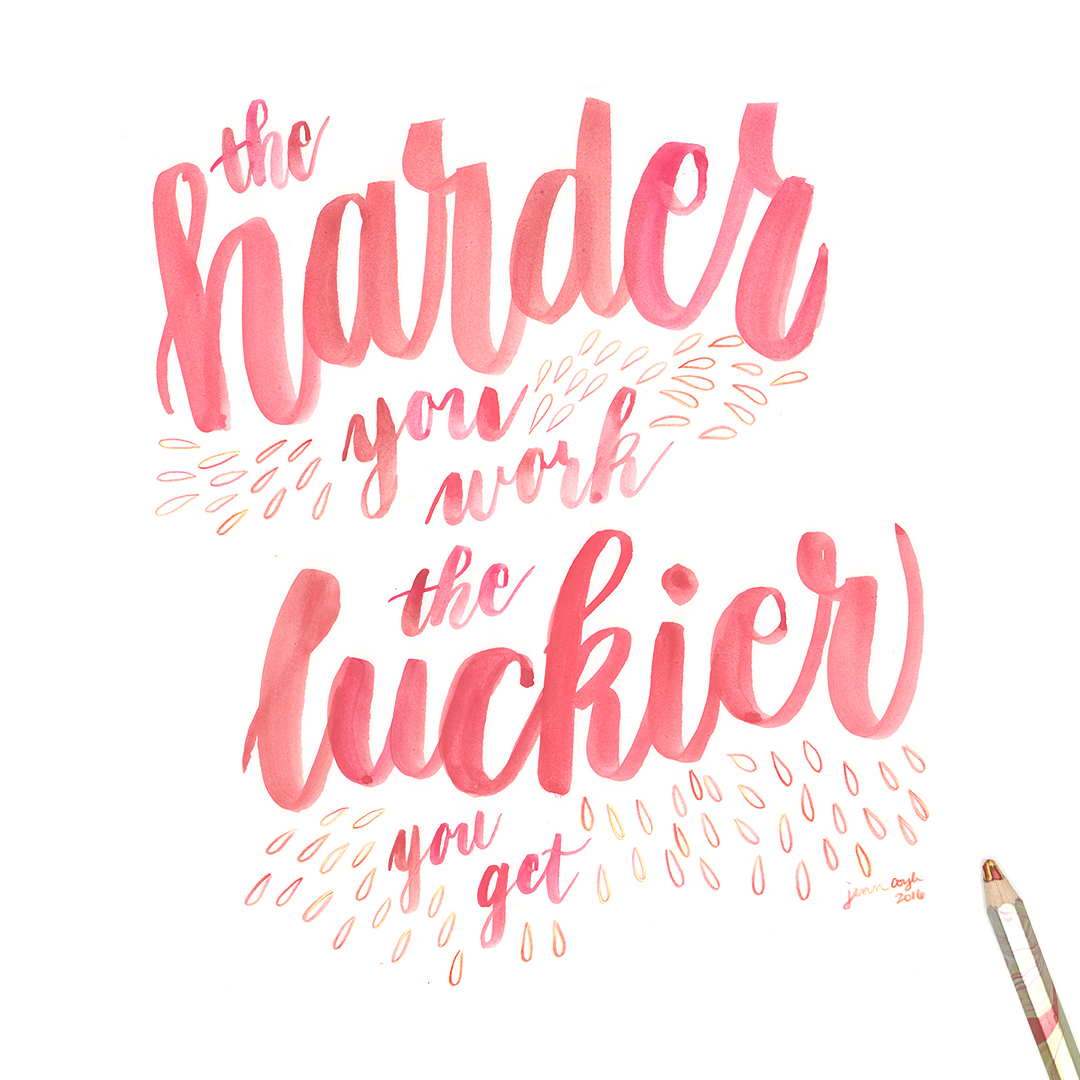 the
harder
you
work
the
luckier
you
get
jenn coyle
2016